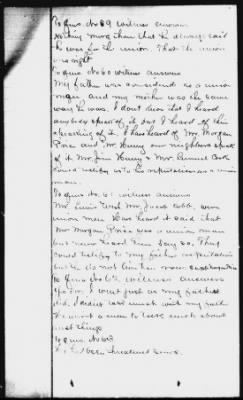 To Ques. No 59 witness answers
Nothing more than that he always said
he was for the union. That the union
was right
To Ques. No 60 witness answers
My father was considered as a union
man and my mother was the same
way he was. I don't know that I heard
anybody speak of it but I heard of this
speaking of it. I has heard of Mr. Morgan
Price and Mr. Henry our neighbors speak
of it. Mr. Jim Henry & Mr. Cook
could testify to his reputation as a union
man.
To Ques. No. 61 witness answers
Mr. Lewis West Mr. Jacob Cobb were
union men. Has heard it said that
Mr. Morgan Price was a union man
but never heard him say so. They
could testify to my father's reputation
but he do not live here now.
To Ques. No 62 witness answers
Yes Sir. I went just as my father
did. I didn't talk much with my father
He wasn't a man to talk much about
such things
To Ques. No 63
been threatened since.